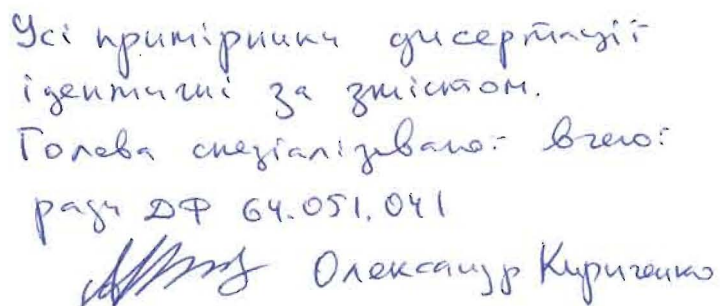 Усі примірники дисертації
ідентичні за змістом.
Голова спеціалізованої вченої
ради ДФ 64.051.041
Олександр Кириченко